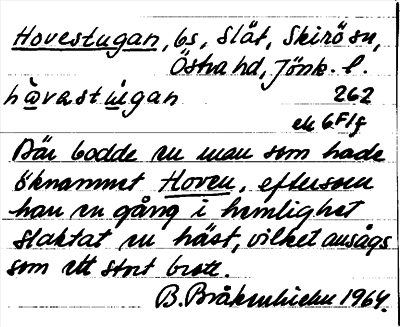 Hovestugan, bs, Slät, Skirö sn,
Östra hd, Jönk. l.
hàvastùgan 262
ek 6F1g
Där bodde en man som hade
öknamnet Hoven, eftersom
han en gång i hemlighet
slaktat en häst, vilket ansågs
som ett stort brott.
B. Bråkenhielm 1964.